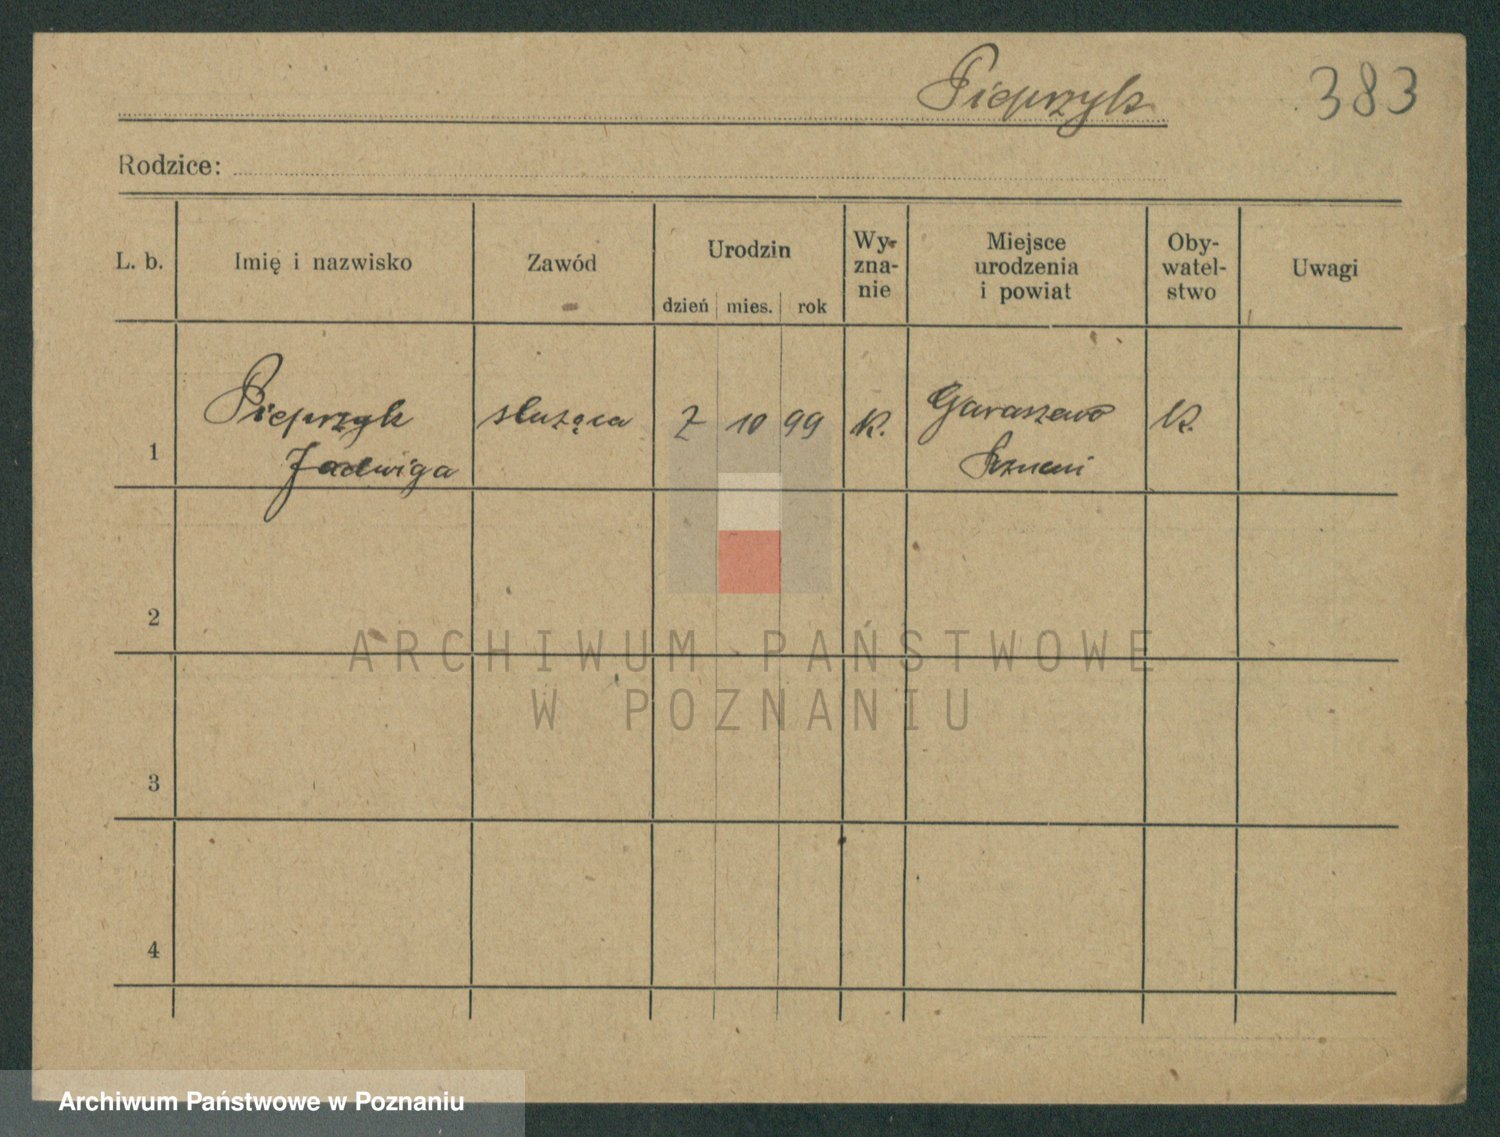 Pieprzyk 383
Rodzice:
L. b. Imię i nazwisko Zawód Urodzin dzień mies. rok Wy-zna-nie Miejsce urodzenia i powiat Oby-watel-stwo Uwagi
1 Pieprzyk Jadwiga służąca 7 10 99 k. Garaszewo
2
3
4
ARCHIWUM PAŃSTWOWE
W POZNANIU
Archiwum Państwowe w Poznaniu